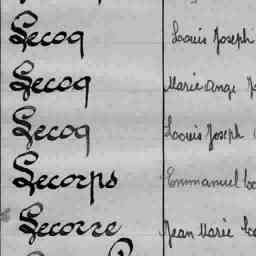 Lecoq Louis Joseph
Lecoq Marie Ange
Lecoq Louis Joseph
Lecorps Emmanuel
Lecorre Jean Marie